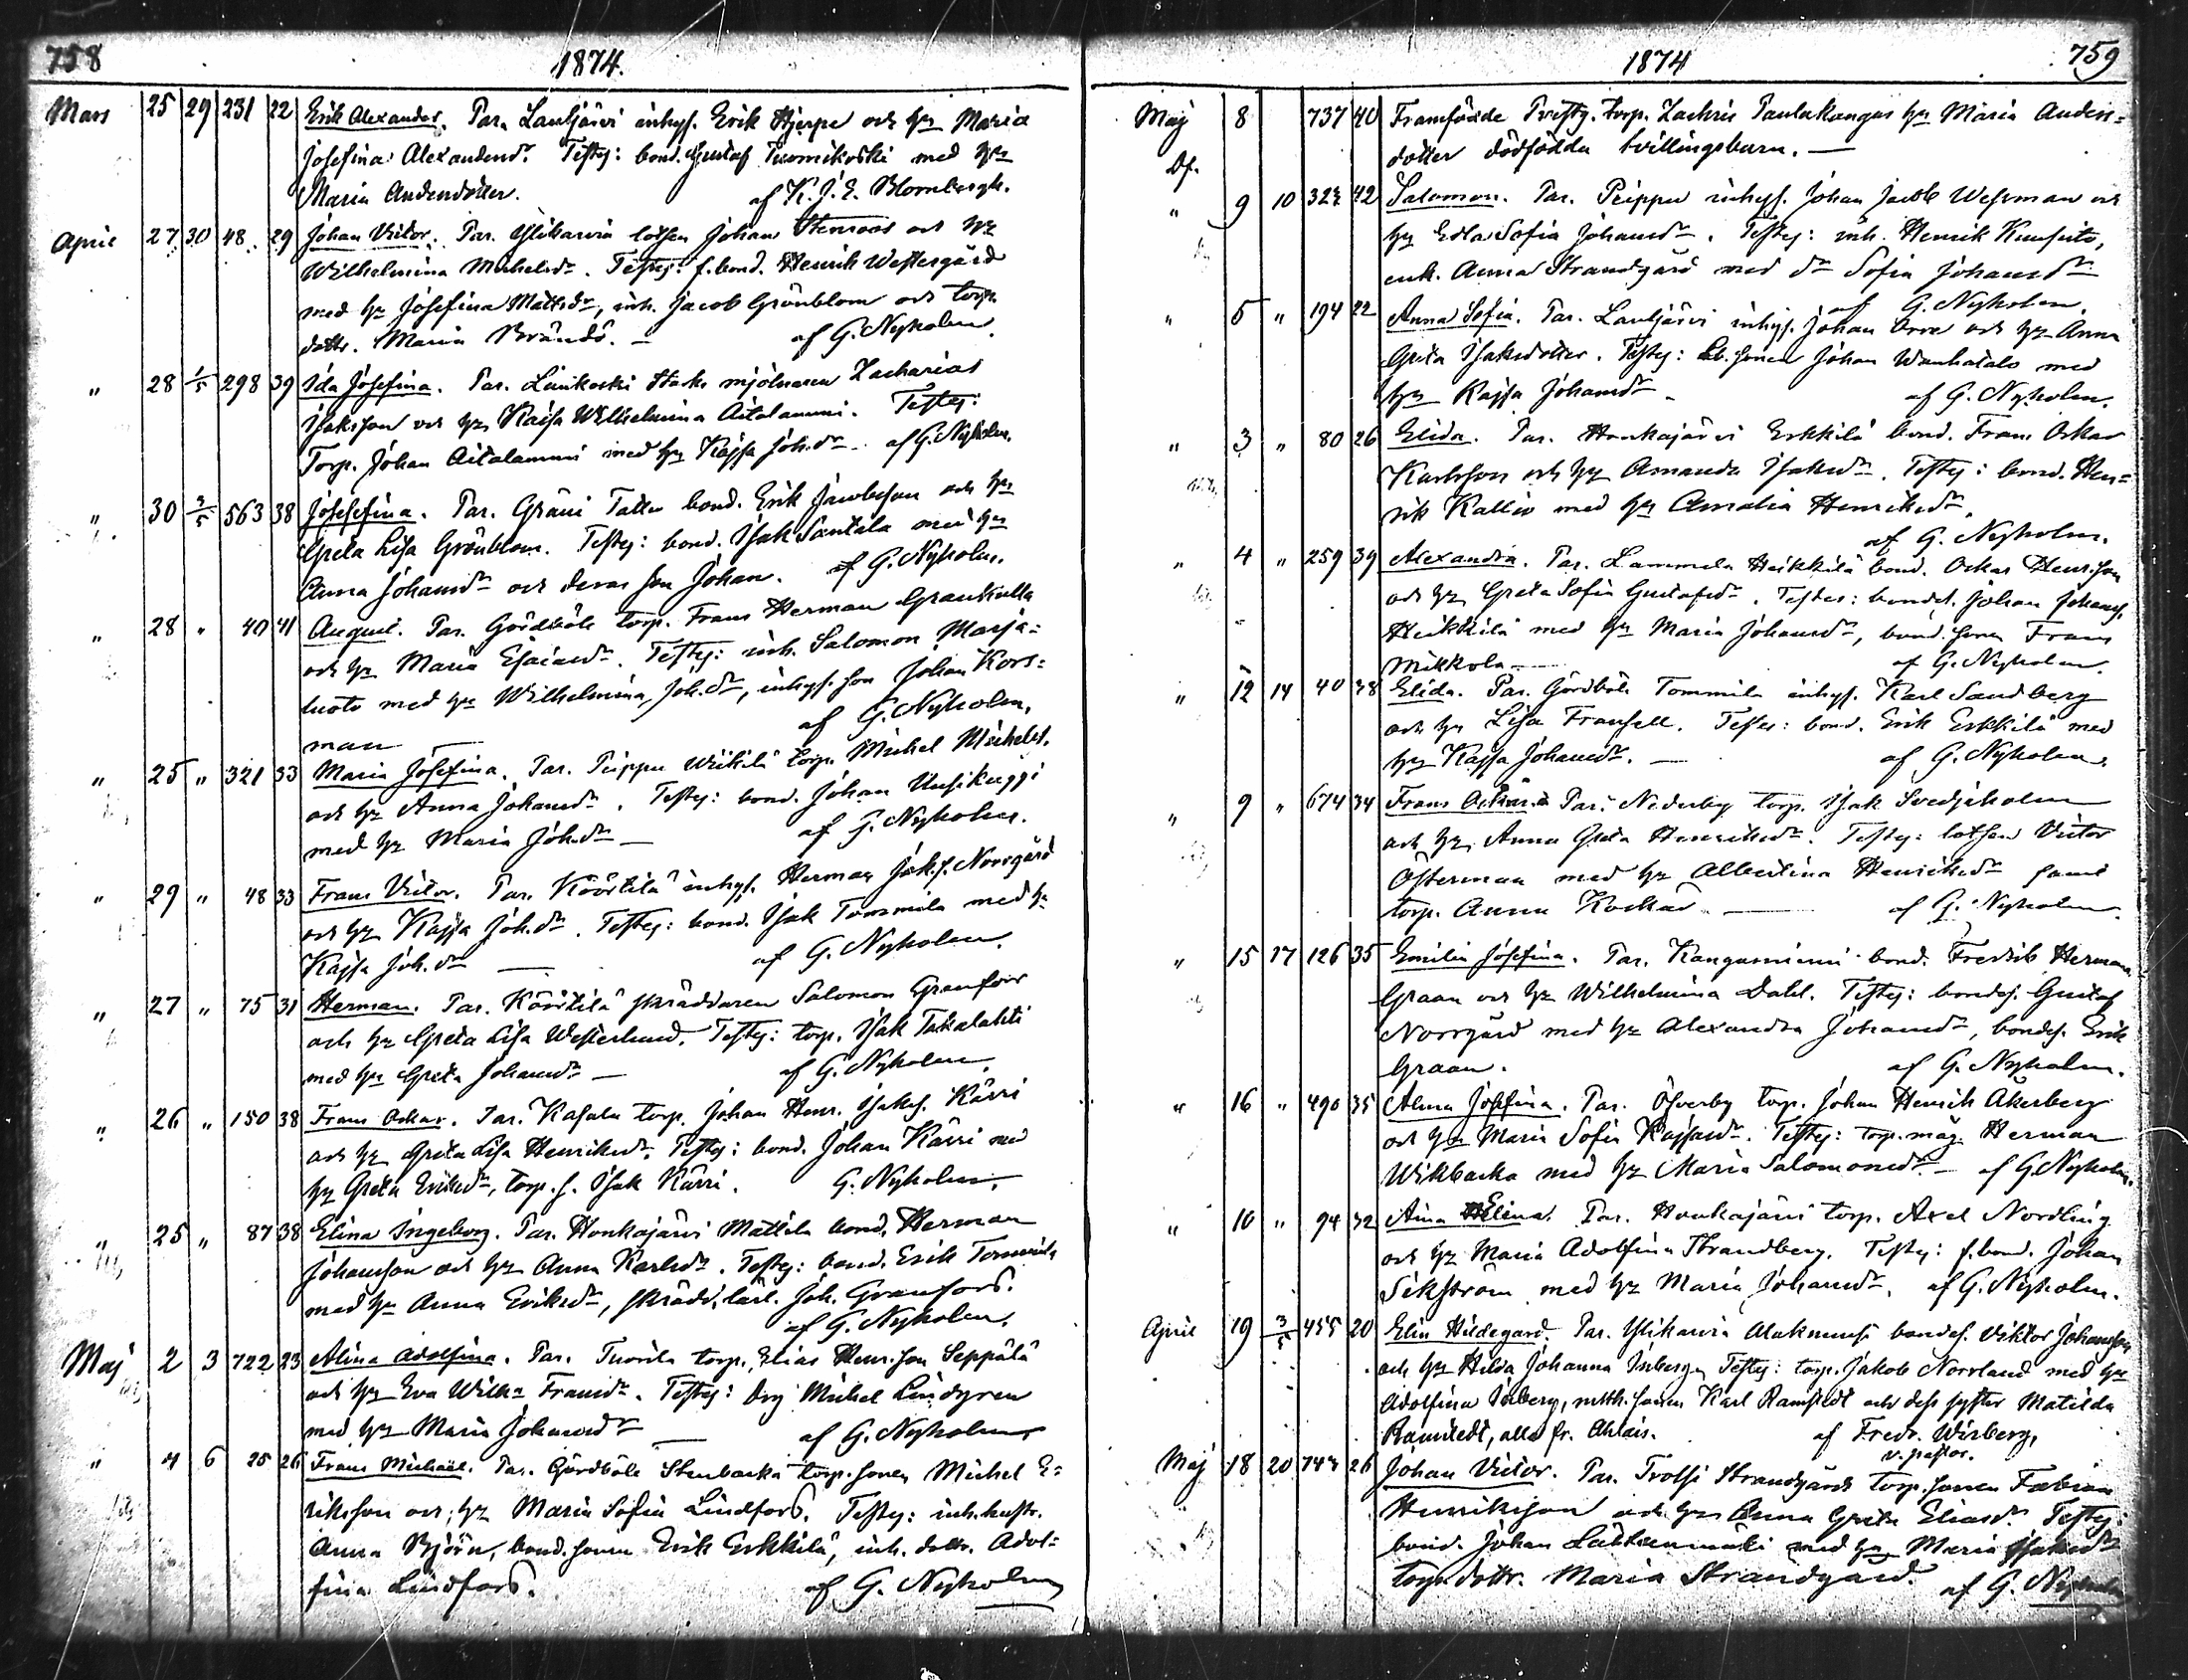 758
1874.
Mars 25 29 231 22 Erik Alexander. Par. Lautjärvi inhys. Erik Hjerpe och hu Maria
Josefina Alexandersdr. Testes: bond. Gustaf Tuomikoski med hu
Maria Andersdotter. af K. J. E. Blombergh.
April 27 30 48 29 Johan Victor. Par. Ylikarvia lotsen Johan Stenroos och hu
Wilhelmina Michelsdr. Testes: f. bond. Henrik Westergård
med hu Josefina Mattsdr, inh. Jacob Grönblom och torp.
dottr. Maria Brändö. — af G. Nyholm.
" 28 1/5 298 39 Ida Josefina. Par. Lankoski Starks mjölnaren Zacharias
Isaksson och hu Kaisa Wilhelmina Aitalammi. Testes:
Torp. Johan Aitalammi med hu Kajsa Joh.dr. af G. Nyholm.
" 30 3/5 563 38 Josefina. Par. Gräsi Tatte bond. Erik Jacobsson och hu
Greta Lisa Grönblom. Testes: bond. Isak Santala med hu
Anna Johansdr och deras son Johan. af G. Nyholm.
" 28 " 40 41 August. Par. Gårdböle torp. Frans Herman Grankulla
och hu Maria Esaiasdr. Testes: inh. Salomon Marja-
luoto med hu Wilhelmina Joh.dr, inhys. son Johan Kors-
man af G. Nyholm.
" 25 " 321 33 Maria Josefina. Par. Peippu Wiikilä torp. Michel Michelss.
och hu Anna Johansdr. Testes: bond. Johan Uusikuppi
med hu Maria Joh.dr — af G. Nyholm.
" 29 " 48 33 Frans Victor. Par. Köörtilä inhys. Herman Jak.s. Norrgård
och hu Kajsa Joh.dr. Testes: bond. Isak Tommila med hu
Kajsa Joh.dr — af G. Nyholm.
" 27 " 75 31 Herman. Par. Köörtilä skräddaren Salomon Granfors
och hu Greta Lisa Westerlund. Testes: torp. Isak Takalahti
med hu Greta Johansdr — af G. Nyholm.
" 26 " 150 38 Frans Oskar. Par. Kasala torp. Johan Henr. Isakss. Kärri
och hu Greta Lisa Henriksdr. Testes: bond. Johan Kärri med
hu Greta Eriksdr, torp. s. Isak Kärri. G. Nyholm.
" 25 " 87 38 Elina Ingeborg. Par. Honkajärvi Mattila bond. Herman
Johansson och hu Anna Karlsdr. Testes: bond. Erik Tommila
med hu Anna Eriksdr, skrädd. lärl. Joh. Granfors.
af G. Nyholm.
Maj 2 3 722 23 Alina Adolfina. Par. Tuorila torp. Elias Henr.son Seppälä
och hu Eva Wilh:a Fransdr. Testes: drg Michel Lindgren
med hu Maria Johansdr — af G. Nyholm
" 4 6 25 26 Frans Michael. Par. Gårdböle Stenbacka torp. sonen Michel E-
riksson och hu Maria Sofia Lindfors. Testes: inh. hustr.
Anna Björn, bond. sonen Erik Erkkilä, inh. dottr. Adol-
fina Lindfors. af G. Nyholm
1874
759
Maj 8 737 40 Framfödde Prestg. torp. Zachris Paulakangas hu Maria Anders-
Df. dotter dödfödda tvillingsbarn. —
" 9 10 323 42 Salomon. Par. Peippu inhys. Johan Jacob Wessman och
hu Edla Sofia Johansdr. Testes: inh. Henrik Kuusisto,
enk. Anna Strandgård med dr Sofia Johansdr
af G. Nyholm.
" 5 " 194 22 Anna Sofia. Par. Lautjärvi inhys. Johan Orre och hu Anna
Greta Isaksdotter. Testes: Lb. sonen Johan Wanhatalo med
hu Kajsa Johansdr. af G. Nyholm.
" 3 " 80 26 Elida. Par. Honkajärvi Erkkilä bond. Frans Oskar
Karlsson och hu Amanda Isaksdr. Testes: bond. Hen-
rik Kallio med hu Amalia Henriksdr.
af G. Nyholm.
" 4 " 259 39 Alexandra. Par. Lammela Heikkilä bond. Oskar Henr.son
och hu Greta Sofia Gustafsdr. Testes: bondes. Johan Johanss.
Heikkilä med hu Maria Johansdr, bond. sonen Frans
Mikkola — af G. Nyholm.
" 12 14 40 38 Elida. Par. Gårdböle Tommila inhys. Karl Sandberg
och hu Lisa Fransell. Testes: bond. Erik Erkkilä med
hu Kajsa Johansdr. — af G. Nyholm.
" 9 " 674 34 Frans Oskar. Par. Nederby torp. Isak Svedjeholm
och hu Anna Greta Henriksdr. Testes: lotsen Victor
Österman med hu Albertina Henriksdr samt
torp. Anna Kockar — af G. Nyholm.
" 15 17 126 35 Emilia Josefina. Par. Kangasniemi bond. Fredrik Herman
Graan och hu Wilhelmina Dahl. Testes: bondes. Gustaf
Norrgård med hu Alexandra Johansdr, bondes. Erik
Graan. af G. Nyholm.
" 16 " 490 35 Alma Josefina. Par. Öfverby torp. Johan Henrik Åkerberg
och hu Maria Sofia Kajsasdr. Testes: torp. måg Herman
Wikbacka med hu Maria Salomonsdr. — af G. Nyholm.
" 10 " 94 32 Aina Elina. Par. Honkajärvi torp. Axel Nordling
och hu Maria Adolfina Strandberg. Testes: f. bond. Johan
Sikström med hu Maria Johansdr. af G. Nyholm.
April 19 3/5 455 20 Elin Hildegard. Par. Ylikarvia Alakmusi bondes. Viktor Johansson
och hu Hilda Johanna Inberg. Testes: torp. Jakob Norrland med hu
Adolfina Inberg, mtth. sonen Karl Ramstedt och dess syster Matilda
Ramstedt, alla fr. Ahlais. af Fredr. Wirberg,
v. pastor.
Maj 18 20 743 26 Johan Victor. Par. Trolsi Strandgårds torp. sonen Fabian
Henriksson och hu Anna Greta Eliasdr. Testes:
bond. Johan Lähteenmäki med hu Maria Isaksdr
torp. dottr. Maria Strandgård. af G. Nyholm